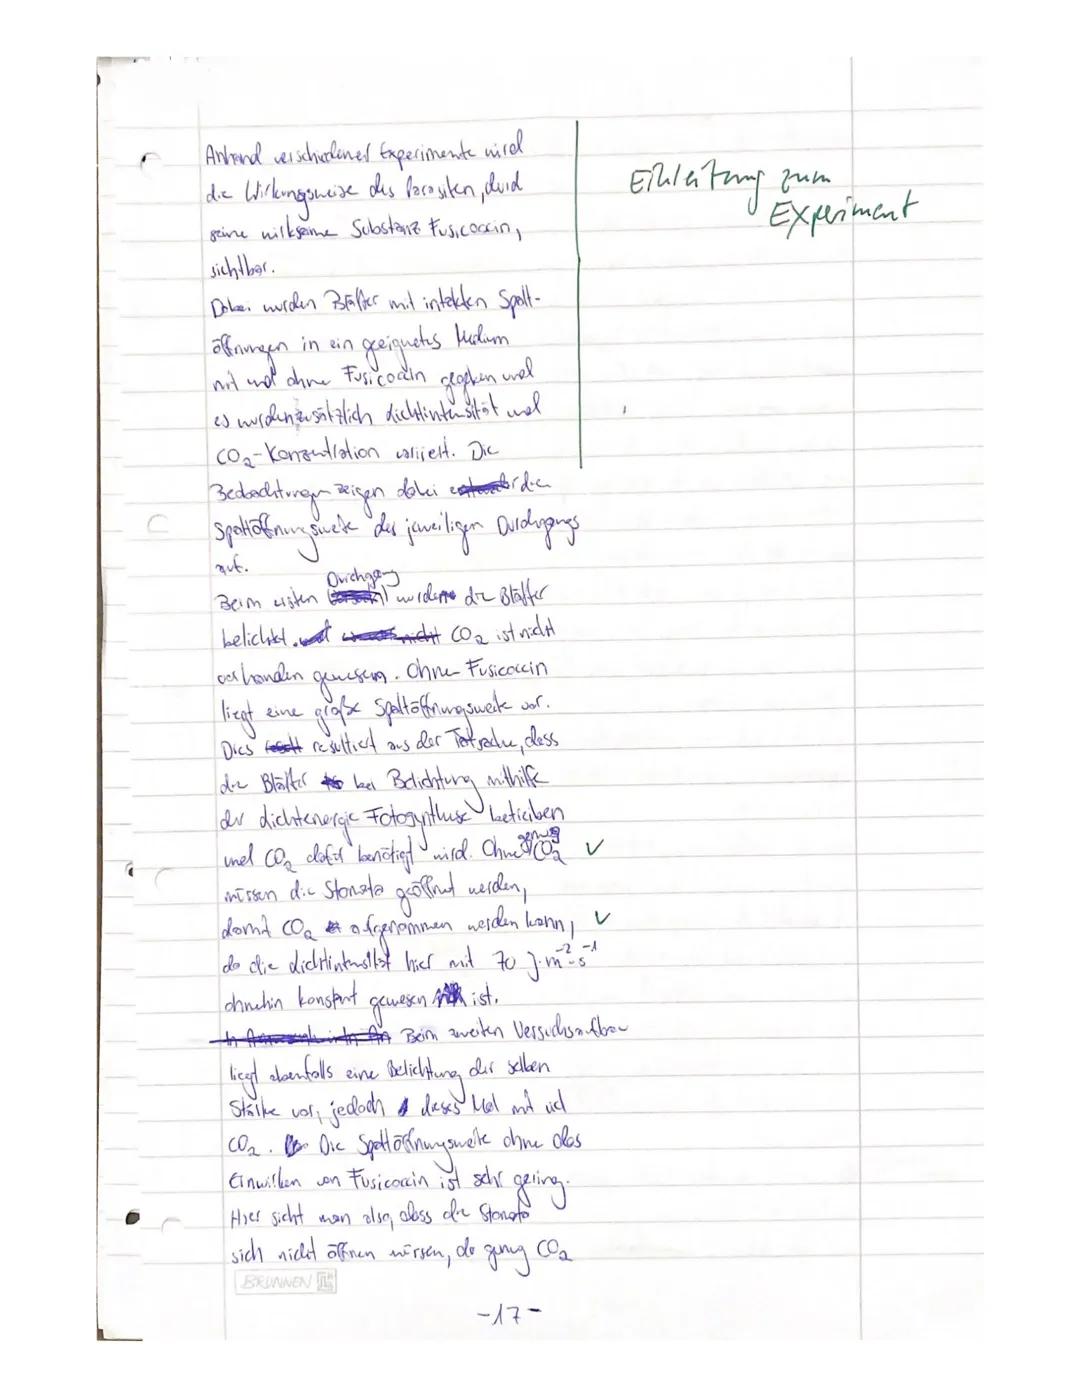 Anhand verschiedener Experimente wird
die Wirkungsweise des Parasiten, durch
seine wirksame Substanz Fusicoccin,
sichtbar.
Einleitung zum
Experiment
Dabei wurden Blätter mit intakten Spalt-
öffnungen in ein geeignetes Medium
mit und ohne Fusicoccin gegeben und
es wurden zusätzlich Lichtintensität und
CO₂-Konzentration variiert. Die
Beobachtungen zeigen dabei die
Spaltöffnungsweite des jeweiligen Durchgangs
auf.
Beim ersten Durchgang wurden die Blätter
belichtet. CO₂ ist nicht
vorhanden gewesen. Ohne Fusicoccin
liegt eine große Spaltöffnungsweite vor.
Dies resultiert aus der Tatsache, dass
die Blätter bei Belichtung mithilfe
der Lichtenergie Fotosynthese betreiben
und CO₂ dafür benötigt wird. Ohne genug CO₂ ✓
müssen die Stomata geöffnet werden,
damit CO₂ aufgenommen werden kann, ✓
da die Lichtintensität hier mit 70 J·m⁻²·s⁻¹
ohnehin konstant gewesen ist.
Beim zweiten Versuchsaufbau
liegt ebenfalls eine Belichtung der selben
Stärke vor, jedoch dieses Mal mit viel
CO₂. Die Spaltöffnungsweite ohne das
Einwirken von Fusicoccin ist sehr gering.
Hier sieht man also, dass die Stomata
sich nicht öffnen müssen, da genug CO₂
BRUNNEN
-17-